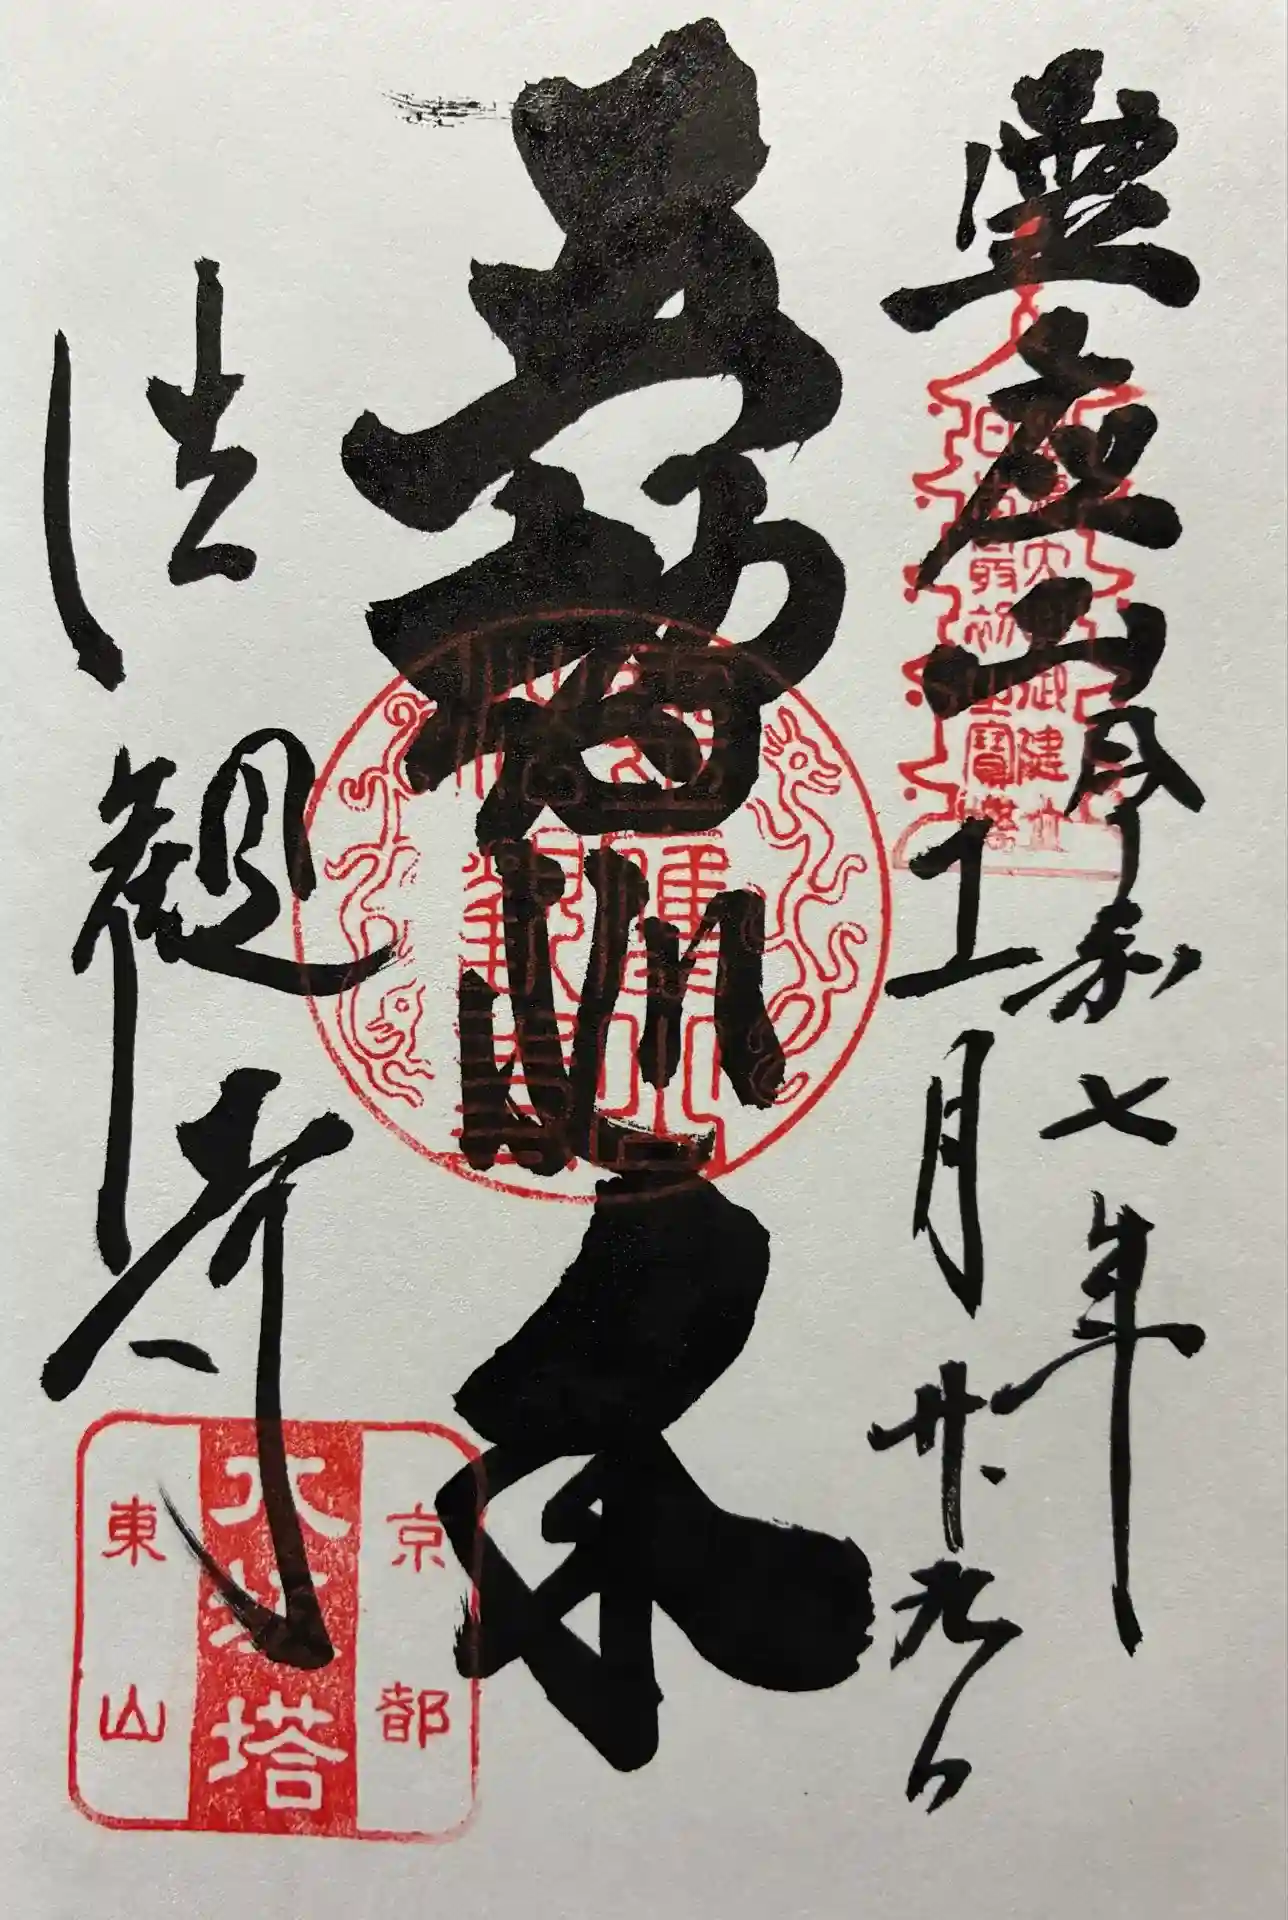 霊應山
令和七年
月廿九日
聖徳太子御建立
日本最初之寶塔
五智如来
法観寺
京都
八坂塔
東山